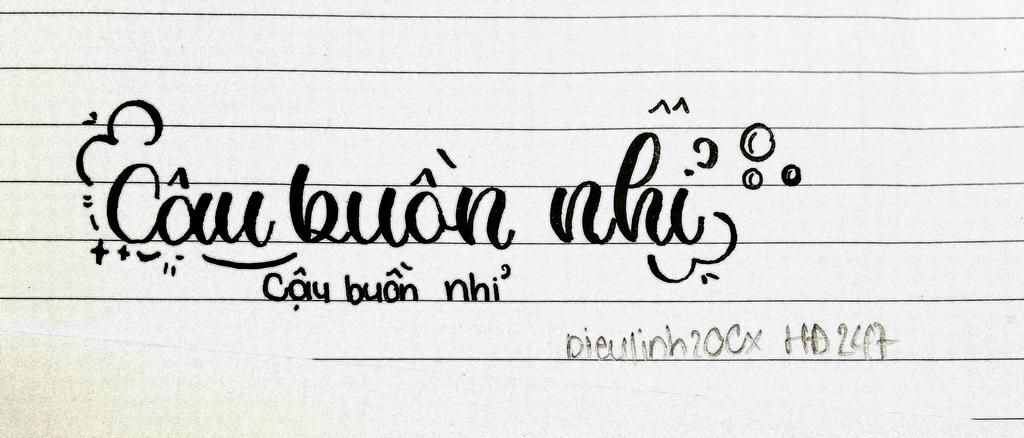 Câu buồn nhỉ
Cậu buồn nhỉ
Dieulinh20Cx HD247